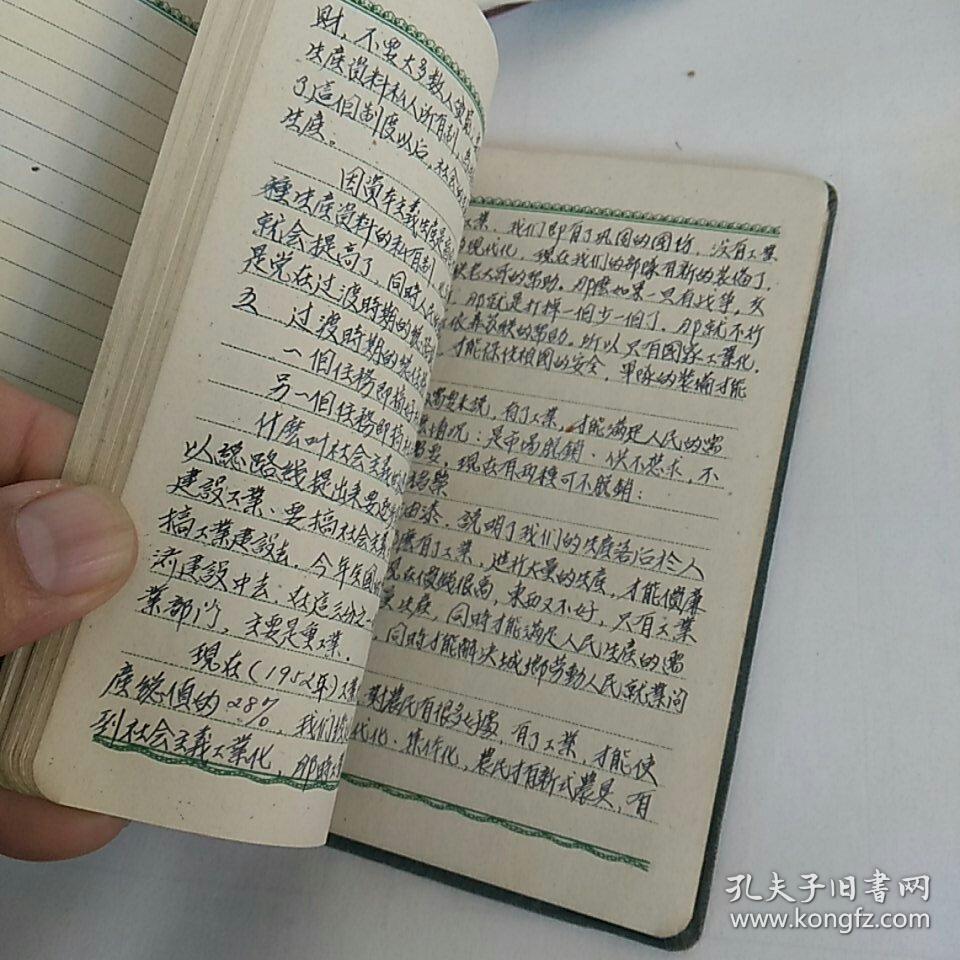 财，不要大多数人
生产资料私人所有制，
了這個制度以后，社会
生产。
因资本主義生产是
種生产資料的私有制
就会提高了，同時人民
是党在过渡時期的
五 过渡時期的
一個任務即搞好
另一個任務即搞
什麽叫社会主義的
以總路线提出来要
建設工業、要搞社会主義
搞工業建設去。今年全國
济建設中去，在這三分之二
業部门，主要是重工業。
現在(1952年)工業
产總值的28%，我们
到社会主義工業化，那時工
工業，我们即有了巩固的国防，没有工業
現代化，現在我们的部隊有新的装備了，
老大哥的帮助。那麽如果一旦有战争，
那就是打掉一個少一個了，那就不行
依靠苏联的帮助，所以只有国家工業化，
才能保住祖国的安全，軍隊的装備才能
需要来説，有了工業，才能满足人民的需
情况：是市場脱銷、供不應求，不
要，現在有两種可不脱銷：
油漆，説明了我们的生产落后於人
麽有了工業，進行大量的生产，才能價廉
現在價錢很高，東西又不好，只有工業
生产，同時才能满足人民生产的需
同時才能解决城鄉劳動人民就業问
對農民有很多好處，有了工業，才能使
代化、集体化，農民才有新式農具，有
孔夫子旧書网
www.kongfz.com